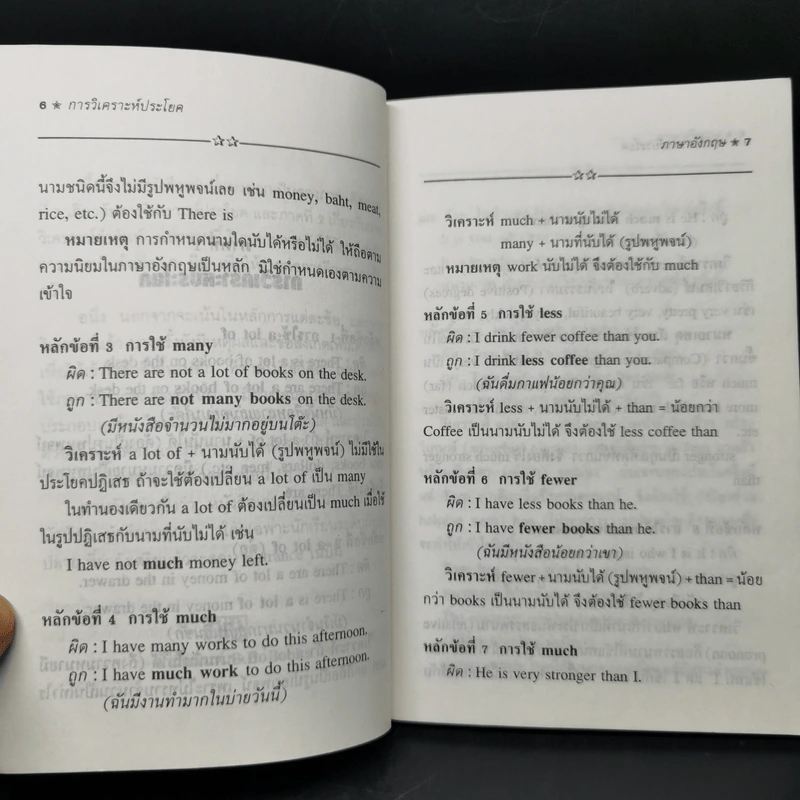 6 ★ การวิเคราะห์ประโยค
นามชนิดนี้จึงไม่มีรูปพหูพจน์เลย เช่น money, baht, meat,
rice, etc.) ต้องใช้กับ There is
หมายเหตุ การกำหนดนามใดนับได้หรือไม่ได้ ให้ถือตาม
ความนิยมในภาษาอังกฤษเป็นหลัก มิใช่กำหนดเองตามความ
เข้าใจ
หลักข้อที่ 3 การใช้ many
ผิด : There are not a lot of books on the desk.
ถูก : There are not many books on the desk.
(มีหนังสือจำนวนไม่มากอยู่บนโต๊ะ)
วิเคราะห์ a lot of + นามนับได้ (รูปพหูพจน์) ไม่มีใช้ใน
ประโยคปฏิเสธ ถ้าจะใช้ต้องเปลี่ยน a lot of เป็น many
ในทำนองเดียวกัน a lot of ต้องเปลี่ยนเป็น much เมื่อใช้
ในรูปปฏิเสธกับนามที่นับไม่ได้ เช่น
I have not much money left.
หลักข้อที่ 4 การใช้ much
ผิด : I have many works to do this afternoon.
ถูก : I have much work to do this afternoon.
(ฉันมีงานทำมากในบ่ายวันนี้)
ภาษาอังกฤษ ★ 7
วิเคราะห์ much + นามนับไม่ได้
many + นามที่นับได้ (รูปพหูพจน์)
หมายเหตุ work นับไม่ได้ จึงต้องใช้กับ much
หลักข้อที่ 5 การใช้ less
ผิด : I drink fewer coffee than you.
ถูก : I drink less coffee than you.
(ฉันดื่มกาแฟน้อยกว่าคุณ)
วิเคราะห์ less + นามนับไม่ได้ + than = น้อยกว่า
Coffee เป็นนามนับไม่ได้ จึงต้องใช้ less coffee than
หลักข้อที่ 6 การใช้ fewer
ผิด : I have less books than he.
ถูก : I have fewer books than he.
(ฉันมีหนังสือน้อยกว่าเขา)
วิเคราะห์ fewer + นามนับได้ (รูปพหูพจน์) + than = น้อย
กว่า books เป็นนามนับได้ จึงต้องใช้ fewer books than
หลักข้อที่ 7 การใช้ much
ผิด : He is very stronger than I.